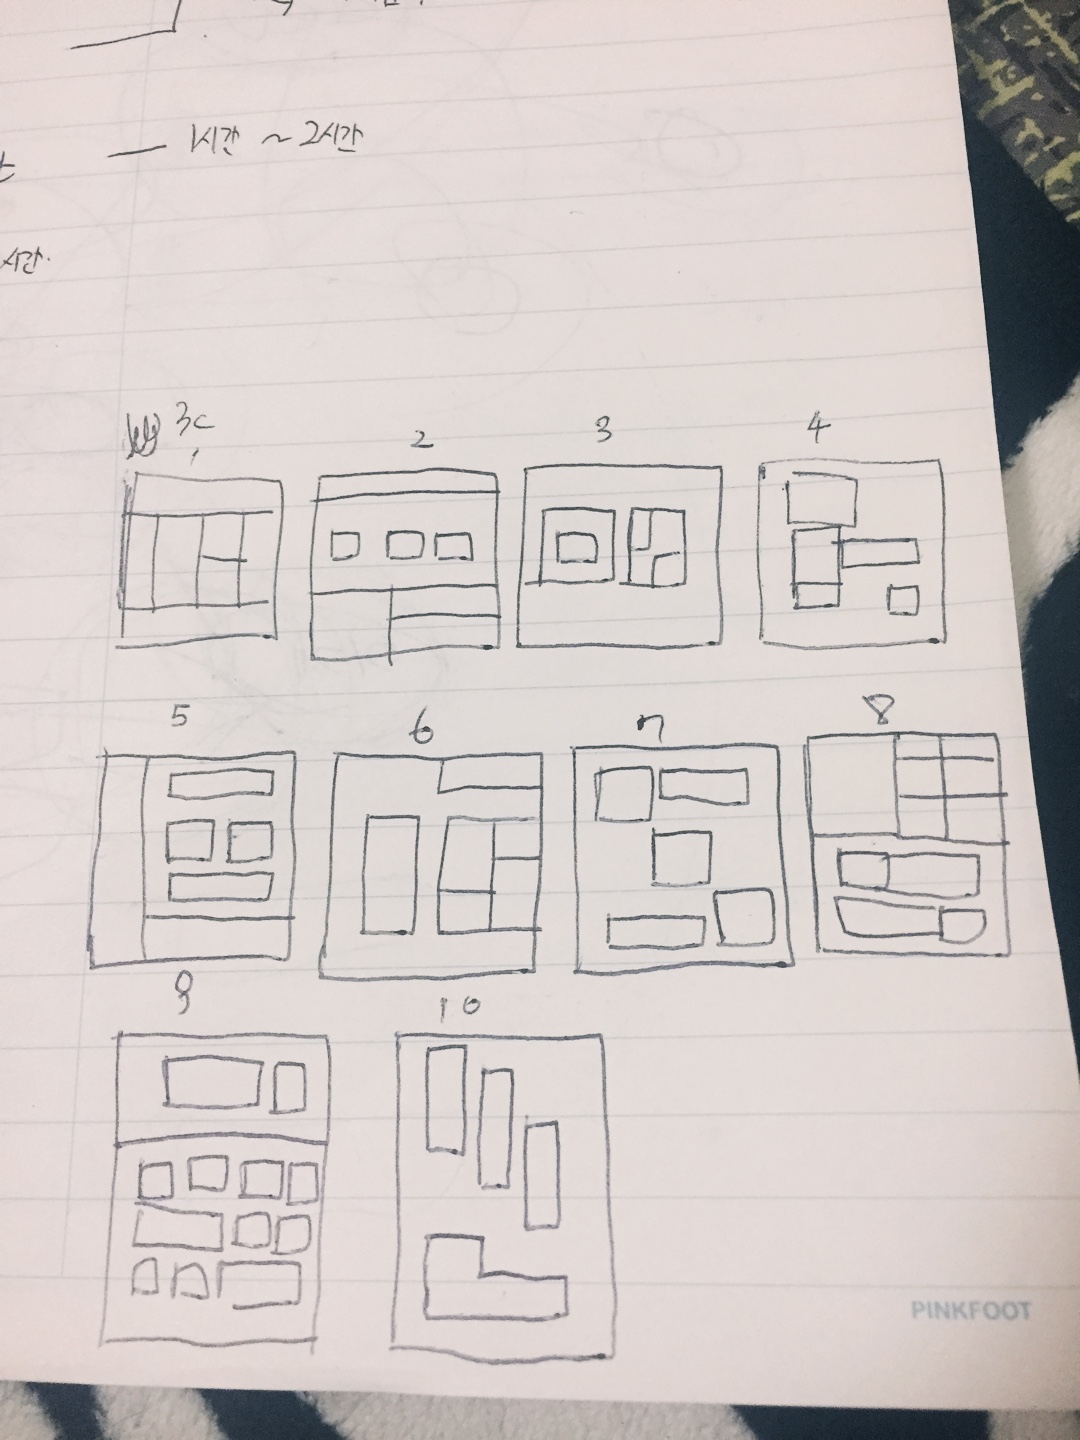 — 1시간 ~ 2시간
시간.
3c
1 2 3 4
5 6 7 8
9 10
PINKFOOT